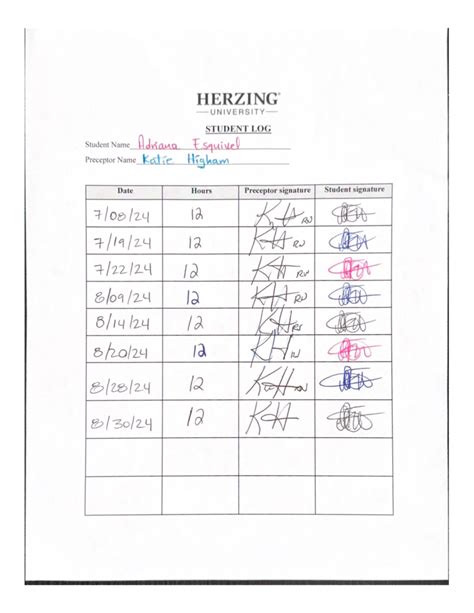 HERZING®
UNIVERSITY
STUDENT LOG
Student Name Adriana Esquivel
Preceptor Name Katie Higham
Date Hours Preceptor signature Student signature
7/08/24 12 KH RN
7/19/24 12 KH RN
7/22/24 12 KH RN
8/09/24 12 KH RN
8/14/24 12 KH RN
8/20/24 12 KH RN
8/28/24 12 KH RN
8/30/24 12 KH